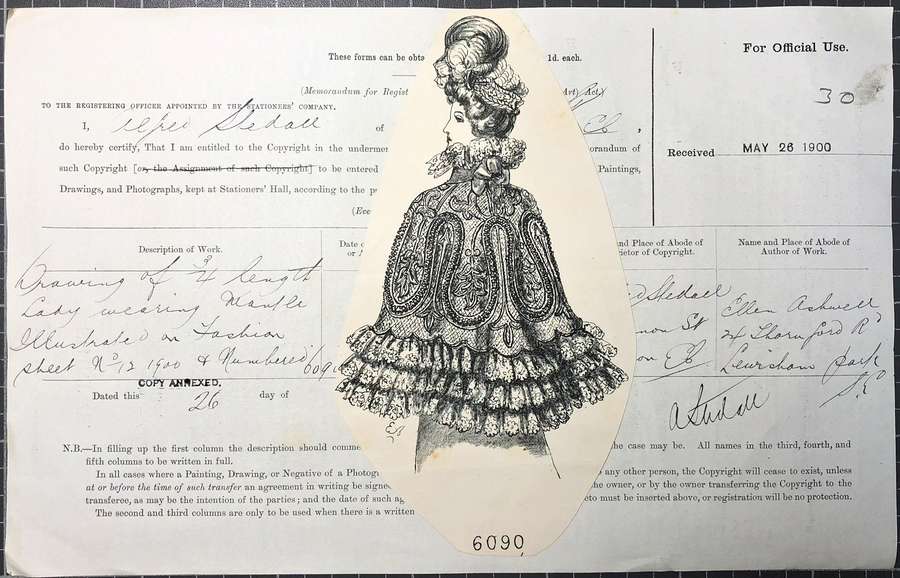 These forms can be obta 1d. each.
For Official Use.
(Memorandum for Regist Art) Act.)
30
TO THE REGISTERING OFFICER APPOINTED BY THE STATIONERS' COMPANY.
I, Alfred Stedall of EC,
do hereby certify, That I am entitled to the Copyright in the underme morandum of
Received MAY 26 1900
such Copyright [or, the Assignment of such Copyright] to be entered Paintings,
Drawings, and Photographs, kept at Stationers' Hall, according to the p
(Eve
Description of Work.
Date o
or A
nd Place of Abode of
rietor of Copyright.
Name and Place of Abode of
Author of Work.
Drawing of 3/4 length
Lady wearing Mantle
Illustrated on Fashion
sheet No 12 1900 & Numbered 609
d Stedall
non St
on EC
Ellen Ashwell
24 Thornford Rd
Lewisham Park
SE
COPY ANNEXED.
Dated this 26 day of
A Stedall
EA
N.B.—In filling up the first column the description should comme the case may be. All names in the third, fourth, and
fifth columns to be written in full.
In all cases where a Painting, Drawing, or Negative of a Photog any other person, the Copyright will cease to exist, unless
at or before the time of such transfer an agreement in writing be signe the owner, or by the owner transferring the Copyright to the
transferee, as may be the intention of the parties; and the date of such ag to must be inserted above, or registration will be no protection.
The second and third columns are only to be used when there is a written
6090